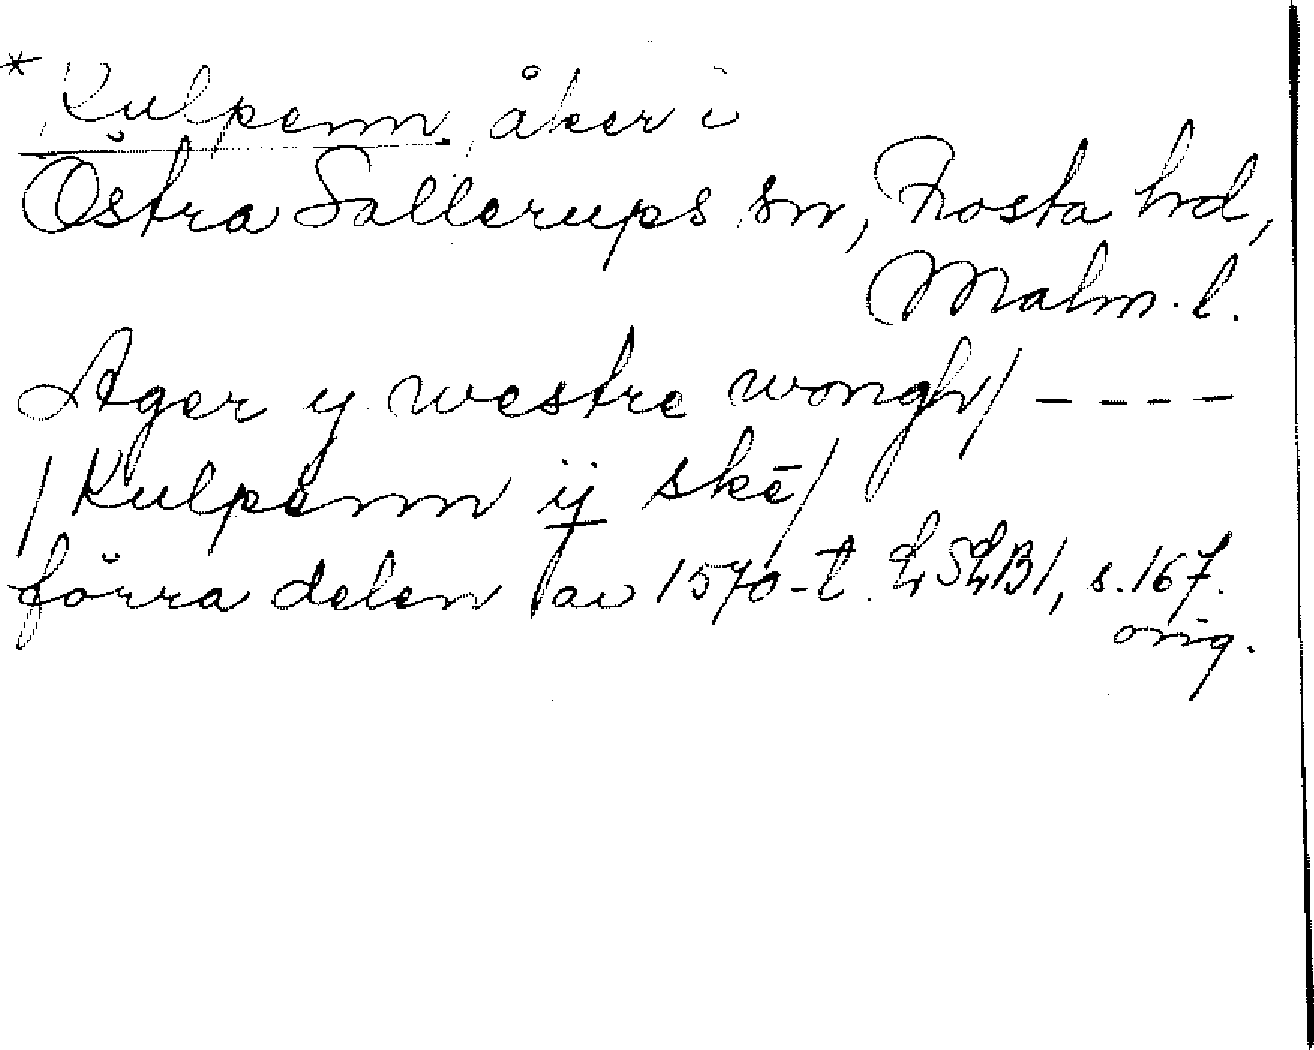 * Kulpenn, åker i
Östra Sallerups sn, Frosta hd,
Malm. l.
Ager y westre wongh/ ----
/Kulpenn ij skē/
förra delen av 1570-t. LSLB1, s. 167.
orig.